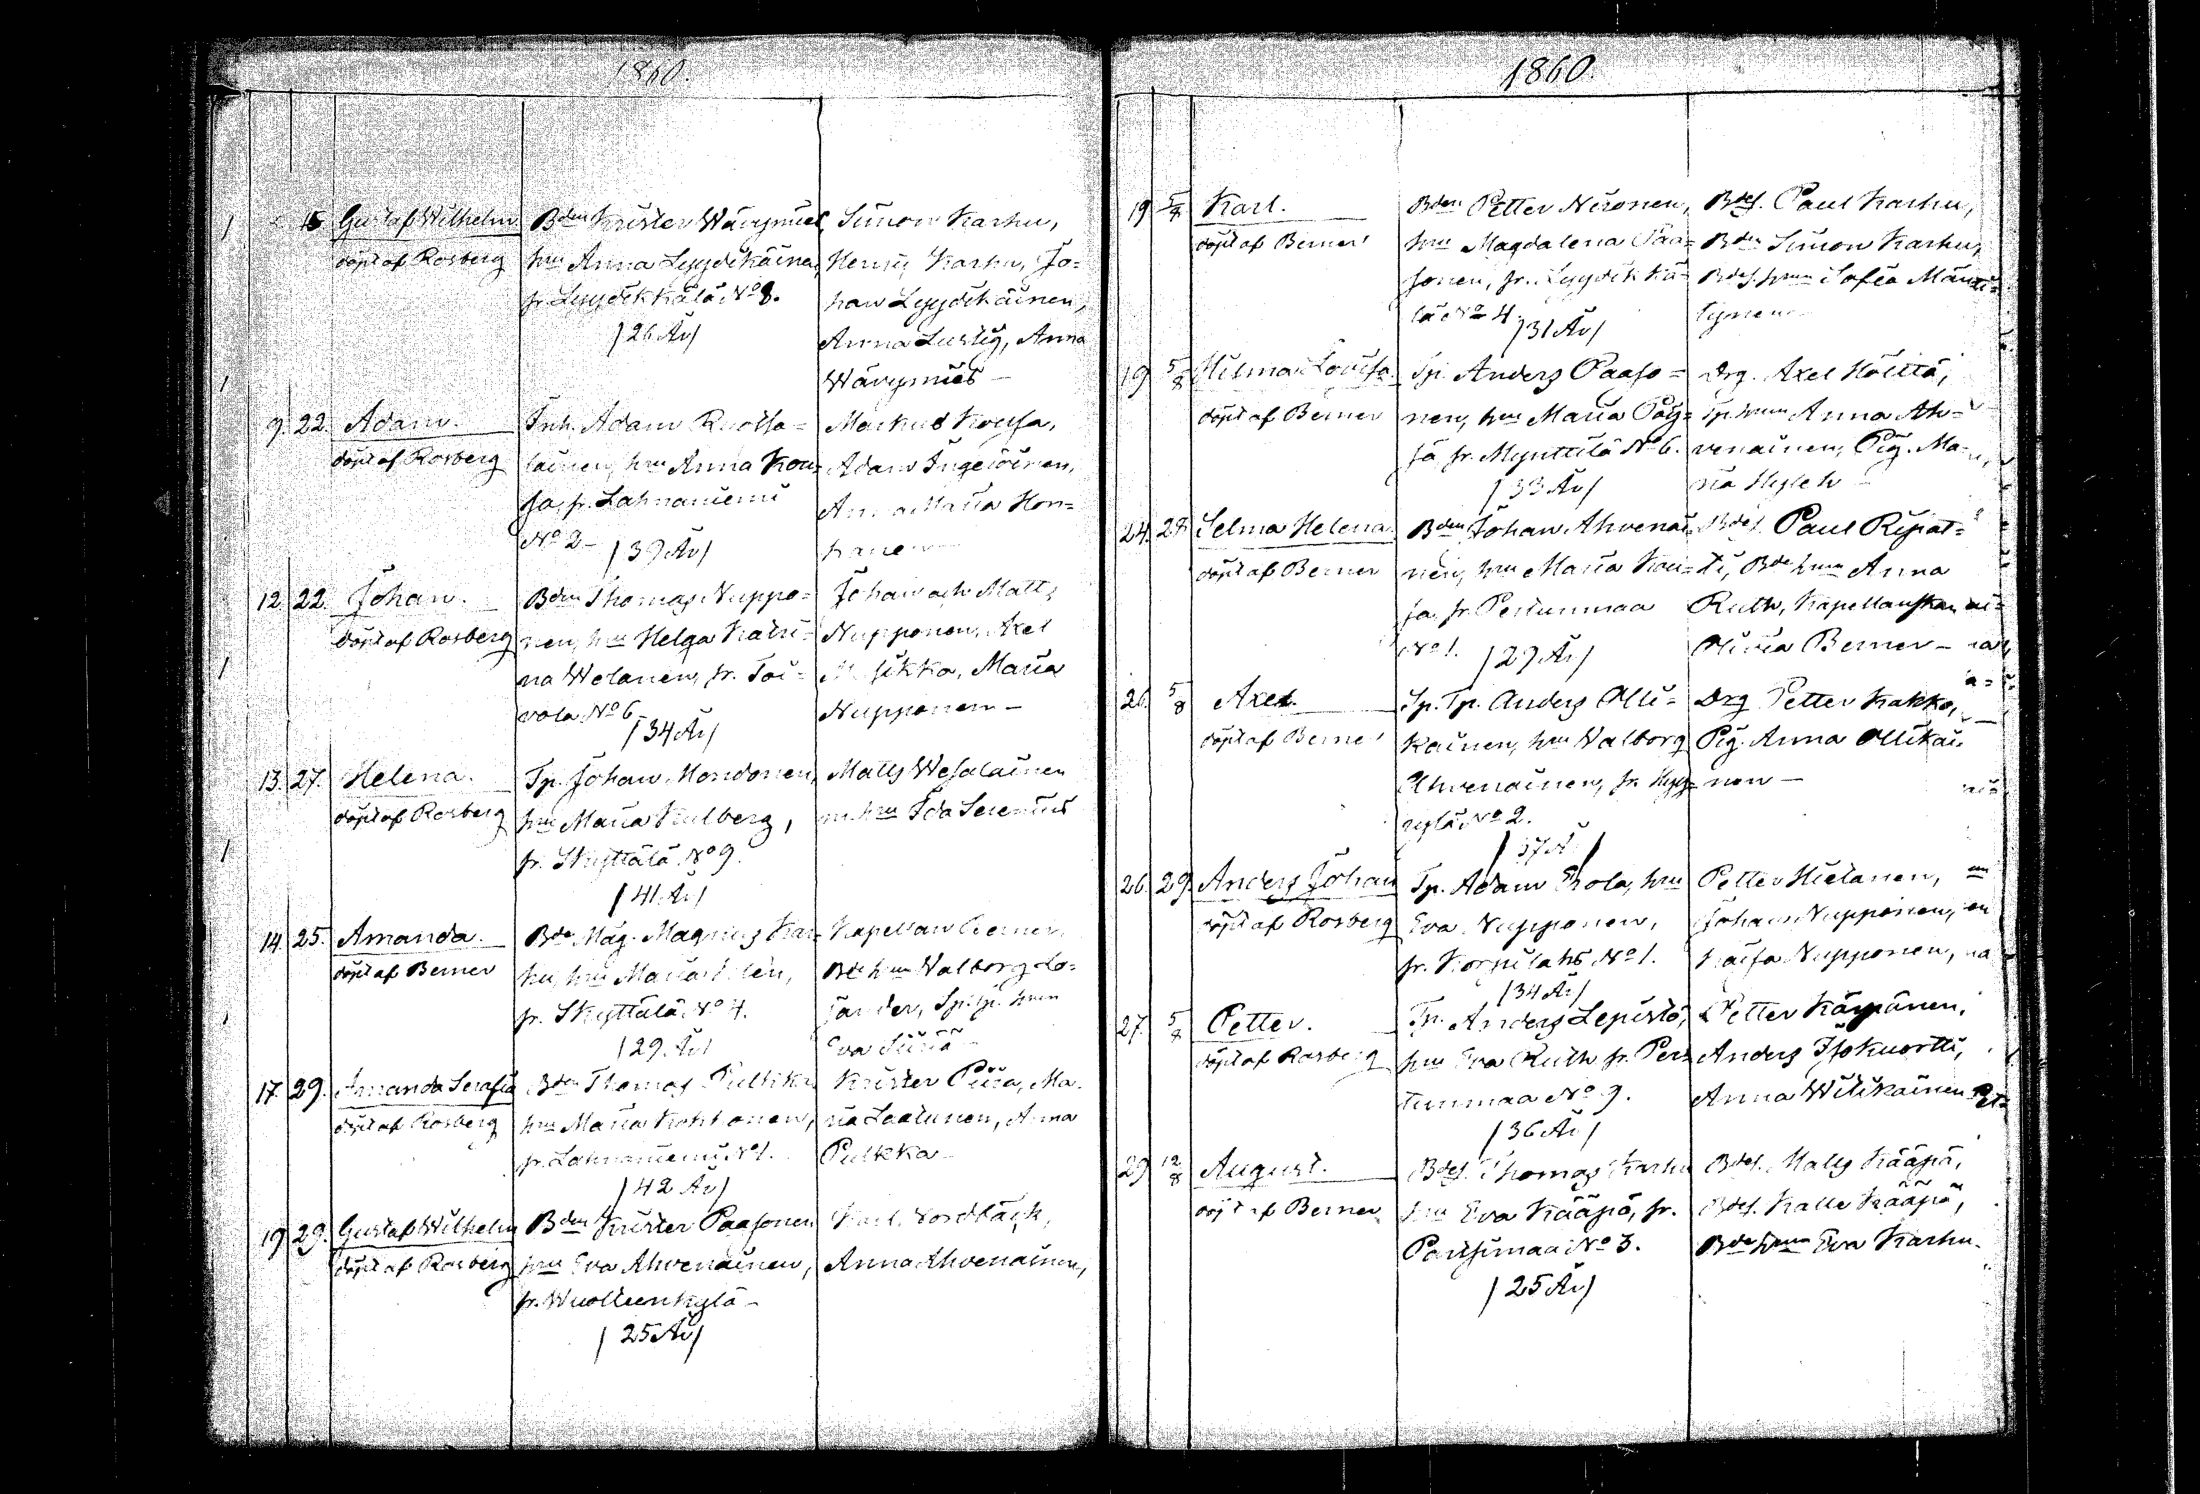 1860.
15. Gustaf Wilhelm
döpt af Rosberg
Bden Krister Wäynmies
hru Anna Lyydikäinen,
fr. Lyydikkälä No 8.
/26 År/
Simon Karhu,
Henric Karhu, Jo=
han Lyydikäinen,
Anna Lustig, Anna
Wäynmies —
9. 22. Adam.
döpt af Rosberg
Inh. Adam Ruotsa=
lainen, hru Anna Kou=
sa, fr. Lahnaniemi
No 2 – /39 År/
Markus Kousa,
Adam Ingeroinen,
Anna Maria Hon=
kanen —
12. 22. Johan.
döpt af Rosberg
Bden Thomas Nuppo=
nen, hru Helga Katri=
na Welanen, fr. Toi=
vola No 6 –
/34 År/
Johan och Matts
Nupponen, Axel
Maria
Nupponen —
13. 27. Helena.
döpt af Rosberg
Tp. Johan Mondonen,
hru Maria Kulberg,
fr. Skyttälä No 9.
/41 År/
Matts Wesalainen
m. hru Ida Serenius
14. 25. Amanda.
döpt af Berner
Bde Måg. Magnus Kar=
hu, hru Maria
fr. Skyttälä No 4.
/29 År/
Kapellan Berner,
Bde hru Walborg Lo=
jander, Sp. tp. hru
Eva Siiriä —
17. 29. Amanda Serafia
döpt af Rosberg
Bden Thomas Pulkka
hru Maria Kokkonen,
fr. Lahnaniemi No 1.
/42 År/
Krister Piira, Ma=
ria Laatunen, Anna
Pulkka —
19. 29. Gustaf Wilhelm
döpt af Rosberg
Bden Krister Paasonen
hru Eva Ahvenainen,
fr. Wuolteenkylä –
/25 År/
Karl Nordbäck,
Anna Ahvenainen,
1860
19 5/8 Karl.
döpt af Berner
Bden Petter Nironen,
hru Magdalena Paa=
sonen, fr. Lyydikkä=
lä No 4.
/31 År/
Bdes. Paul Karhu,
Bden Simon Karhu,
Bdes. hru Sofia Mänti=
lynen —
19 5/8 Hilma Lovisa
döpt af Berner
Tp. Anders Paaso=
nen, hru Maria Pöy=
sä fr. Mynttilä No 6.
/33 År/
Drg. Axel Hölttä,
Tp. hru Anna Ah=
venainen, Pig. Ma=
ria Hyleh
24. 28 Selma Helena
döpt af Berner
Bden Johan Ahvenai=
nen, hru Maria Kou=
sa fr. Pertunmaa
No 1. /29 År/
Bdes. Paul Ripat=
ti, Bde hru Anna
Ruth, Kapellanskan
Olivia Berner —
26. 5/8 Axel.
döpt af Berner
Sp. Tp. Anders Olli=
kainen, hru Walborg
Ahvenainen, fr. Hyy=
rylä No 2.
/37 Å/
Drg Petter Kakko,
Pig. Anna Ollikai
nen —
26. 29. Anders Johan
döpt af Rosberg
Tp. Adam Erola, hru
Eva Nupponen,
fr. Korpilahti No 1.
/34 År/
Petter Hietanen,
Johan Nupponen,
Kaisa Nupponen,
27. 5/8 Petter.
döpt af Rosberg
Tp. Anders Lepistö,
hru Eva Ruth fr. Per=
tunmaa No 9.
/36 År/
Petter Käyänen,
Anders Isokuortti,
Anna Wilikainen
29 12/8 August.
döpt af Berner
Bdes. Thomas Karhu
hru Eva Kääpä, fr.
Pankimaa No 3.
/25 År/
Bdes. Matts Kääpä,
Bdes. Kalle Kääpä,
Bde hru Eva Karhu.